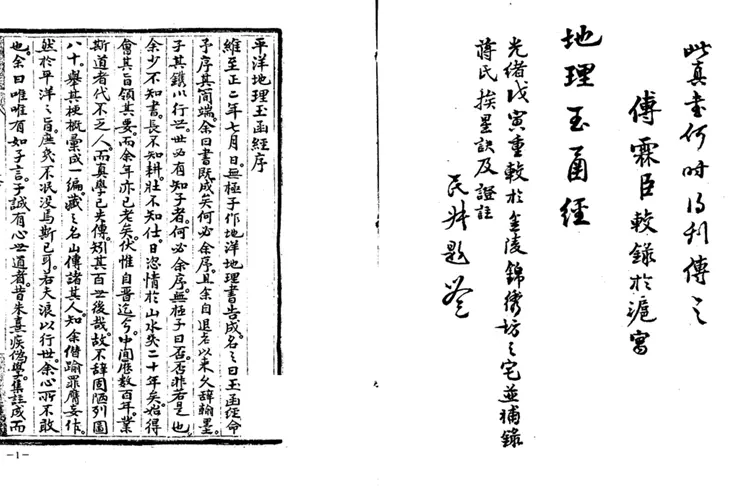 此真書何時得刊傳之
傅霖臣較錄於滬寓
地理玉函經
光緒戊寅重較於金陵錦衞坊之宅並補錄
蔣氏挨星訣及證註
民題
平洋地理玉函經序
維至正二年七月日無極子作地洋地理書告成名之曰玉函經命
予序其簡端余曰書既成矣何必余序且余自退名以來久辭翰墨
子其鐫以行世世必有知子者何必余序無極子曰否否非若是也
余少不知書長不知耕壯不知仕日恣情於山水矣二十年矣始得
會其旨領其要而余年亦已老矣伏惟自晋迄今中間歷數百年業
斯道者代不乏人而真學已失傳矧其百世後哉故不辭固陋列圖
八十舉其梗概彙成一編藏之名山傳諸其人知余僭踰罪膺妄作
然於平洋之旨庶幾不泯沒焉斯已耳若夫浪以行世余心所不敢
也余曰唯唯有如子言子誠有心世道者昔朱熹疾偽學集註成而
－1－